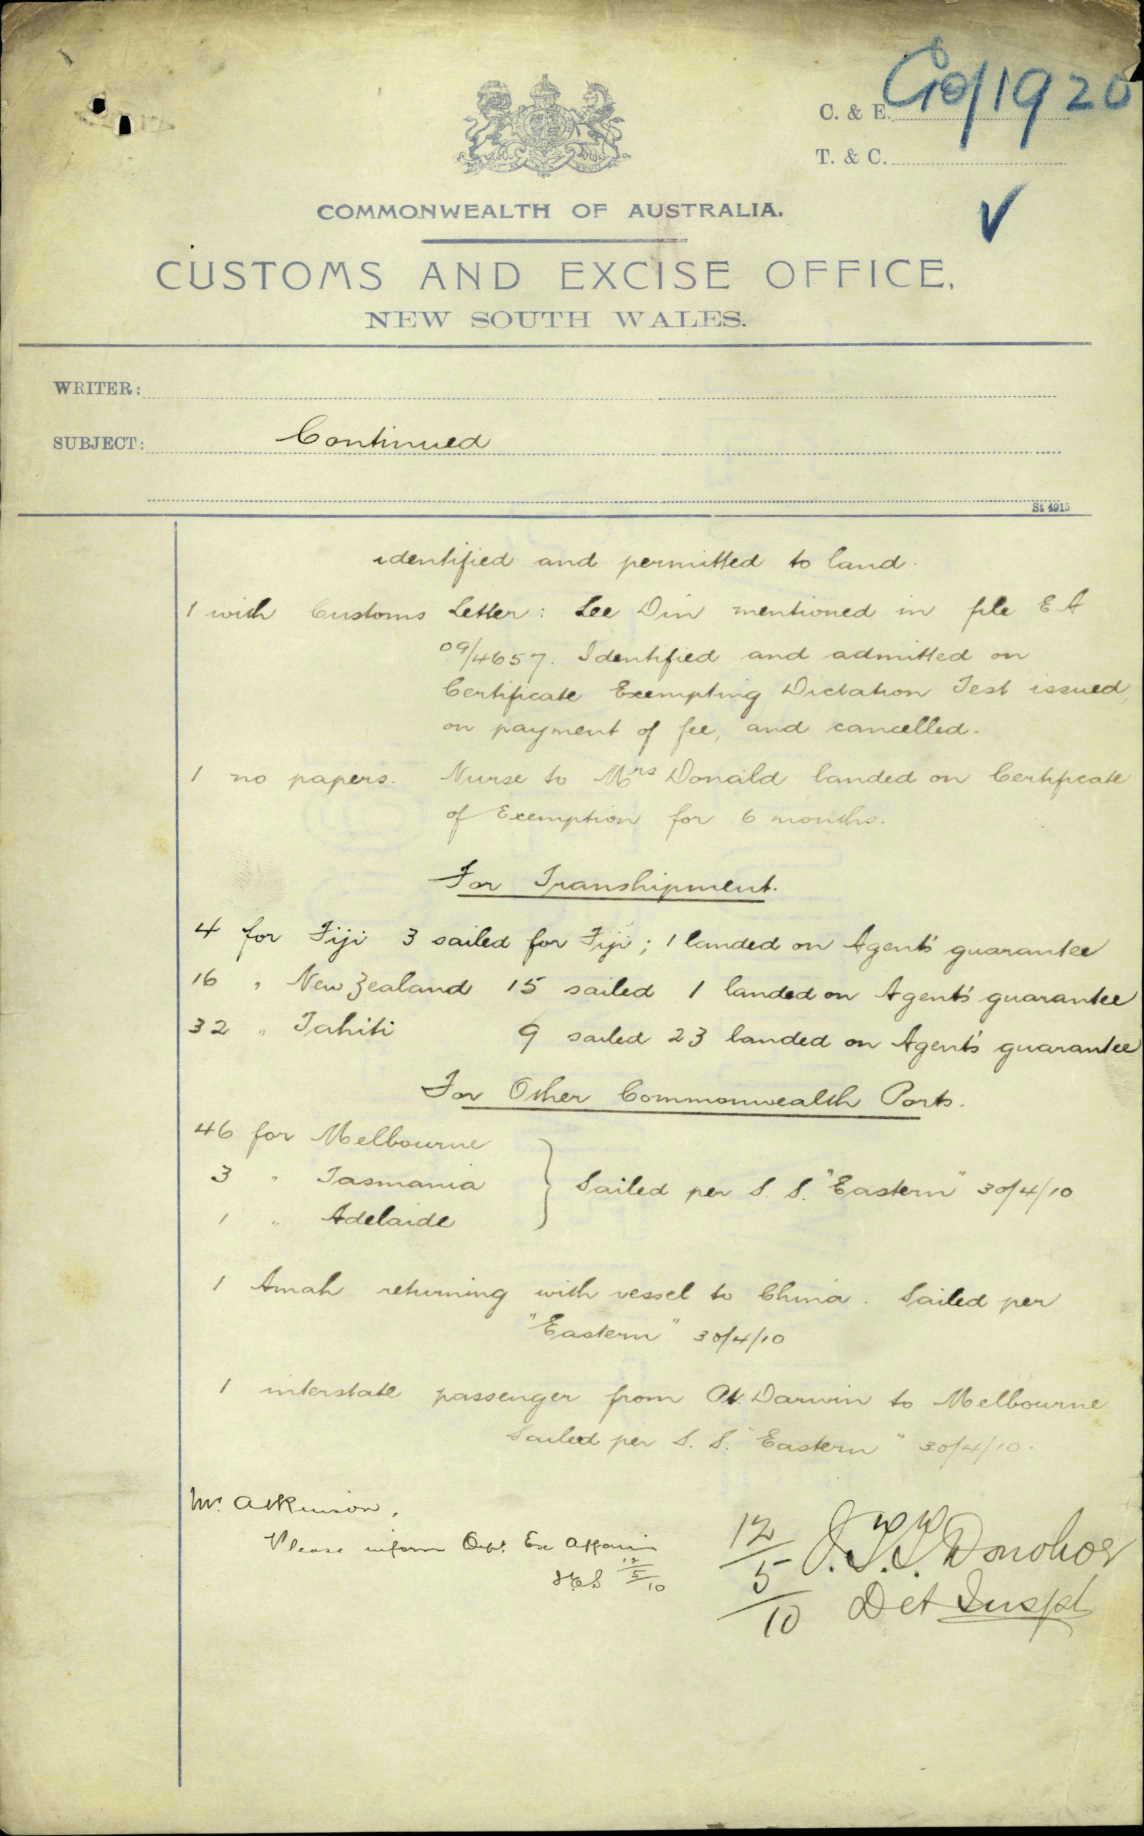 C. & E. G10/1920
T. & C.
COMMONWEALTH OF AUSTRALIA.
CUSTOMS AND EXCISE OFFICE,
NEW SOUTH WALES.
WRITER:
SUBJECT: Continued
St 4915
identified and permitted to land.
1 with Customs Letter: Lee Din mentioned in file E A
09/4657. Identified and admitted on
Certificate Exempting Dictation Test issued,
on payment of fee, and cancelled.
1 no papers. Nurse to Mrs Donald landed on Certificate
of Exemption for 6 months.
For Transhipment.
4 for Fiji 3 sailed for Fiji; 1 landed on Agent's guarantee
16 " New Zealand 15 sailed 1 landed on Agent's guarantee
32 " Tahiti 9 sailed 23 landed on Agent's guarantee
For Other Commonwealth Ports.
46 for Melbourne
3 " Tasmania } Sailed per S. S. "Eastern" 30/4/10
1 " Adelaide
1 Amah returning with vessel to China. Sailed per
"Eastern" 30/4/10
1 interstate passenger from Pt. Darwin to Melbourne
Sailed per S. S. "Eastern" 30/4/10.
Mr. Atkinson,
Please inform Dept. Ex Affairs
12/5/10
12/5/10 J. T. T. Donohoe
Det Inspt